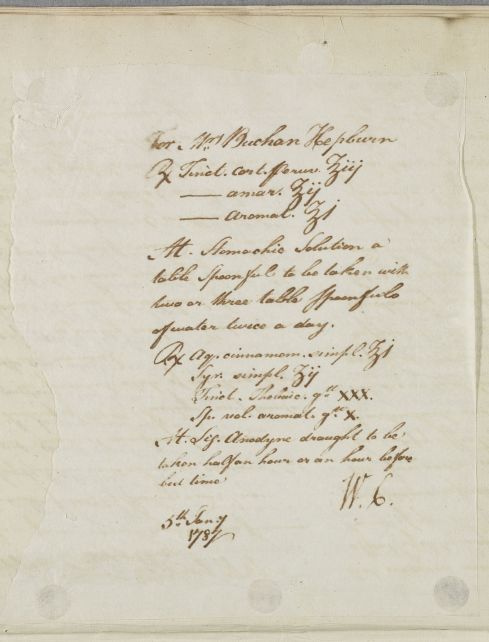 For Mrs Buchan Hepburn
℞ Tinct. cort. Peruv. ℥iij
—— amar. ℥ij
—— aromat. ℥j
M. Stomachic Solution a
table spoonful to be taken with
two or three table spoonfuls
of water twice a day.
℞ Aq. cinnamom. simpl. ℥j
Syr. simpl. ʒij
Tinct. Thebaic. gtt XXX.
Sp. vol. aromat. gtt X.
M. Sig. Anodyne draught to be
taken half an hour or an hour before
bed time
W. C.
5th Jany
1787